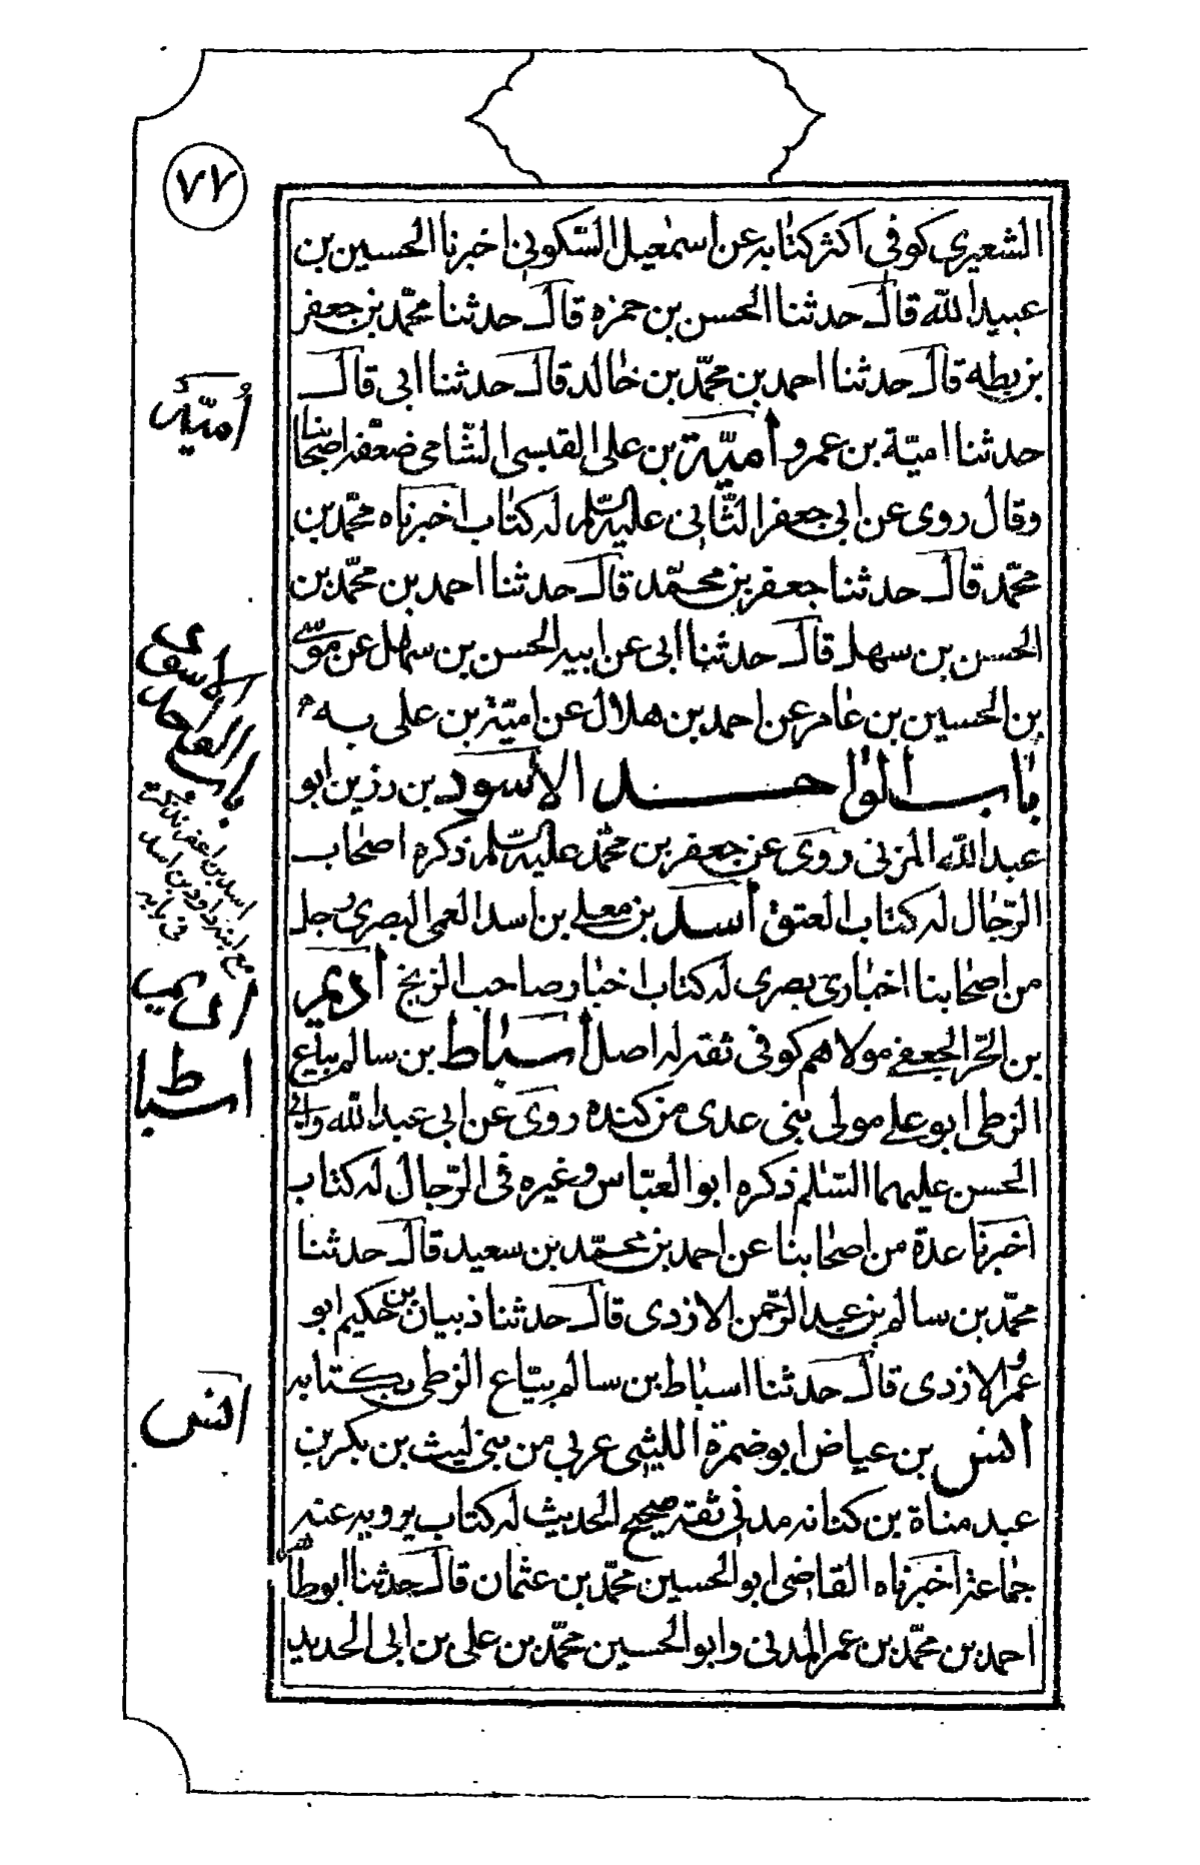 ٧٧
الشعيري كوفي اكثر كتابه عن اسمعيل السكوني اخبرنا الحسين بن
عبيد الله قال حدثنا الحسن بن حمزه قال حدثنا محمّد بن جعفر
بن بطه قال حدثنا احمد بن محمّد بن خالد قال حدثنا ابى قال
حدثنا اميّة بن عمرو أميّة بن على القيسى الشّامى ضعّفه اصحابنا
وقال روى عن ابى جعفر الثّانى عليه السّلم له كتاب اخبرناه محمّد بن
محمّد قال حدثنا جعفر بن محمّد قال حدثنا احمد بن محمّد بن
الحسن بن سهل قال حدثنا ابى عن ابيه الحسن بن سهل عن موسى
بن الحسين بن عامر عن احمد بن هلال عن اميّة بن على به
باب الواحد الأسود بن رزين ابو
عبد الله المزنى روى عن جعفر بن محمّد عليه السّلم ذكره اصحاب
الرّجال له كتاب العتق أسد بن معلى بن اسد العمى البصرى رجل
من اصحابنا اخبارى بصرى له كتاب اخبار صاحب الزنج أديم
بن الحرّ الجعفى مولاهم كوفى ثقة له اصل أسباط بن سالم بياع
الزطى ابو على مولى بنى عدى من كنده روى عن ابى عبد الله وابى
الحسن عليهما السّلم ذكره ابو العبّاس وغيره فى الرّجال له كتاب
اخبرنا عدة من اصحابنا عن احمد بن محمّد بن سعيد قال حدثنا
محمّد بن سالم بن عبد الرّحمن الازدى قال حدثنا ذبيان بن حكيم ابو
عمرو الازدى قال حدثنا اسباط بن سالم بيّاع الزطى بكتابه
أنس بن عياض ابو ضمرة الليثى عربى من بنى ليث بن بكر بن
عبد مناة بن كنانه مدنى ثقة صحيح الحديث له كتاب يرويه عنه
جماعة اخبرناه القاضى ابو الحسين محمّد بن عثمان قال حدثنا ابو طاهر
احمد بن محمّد بن عمر المدنى وابو الحسين محمّد بن على بن ابى الحديد
أميّة
الاسود
باب الواحد
اسد بن اعفر
مع ابنه داود بن اسد
فى بابه
اسباط
انس